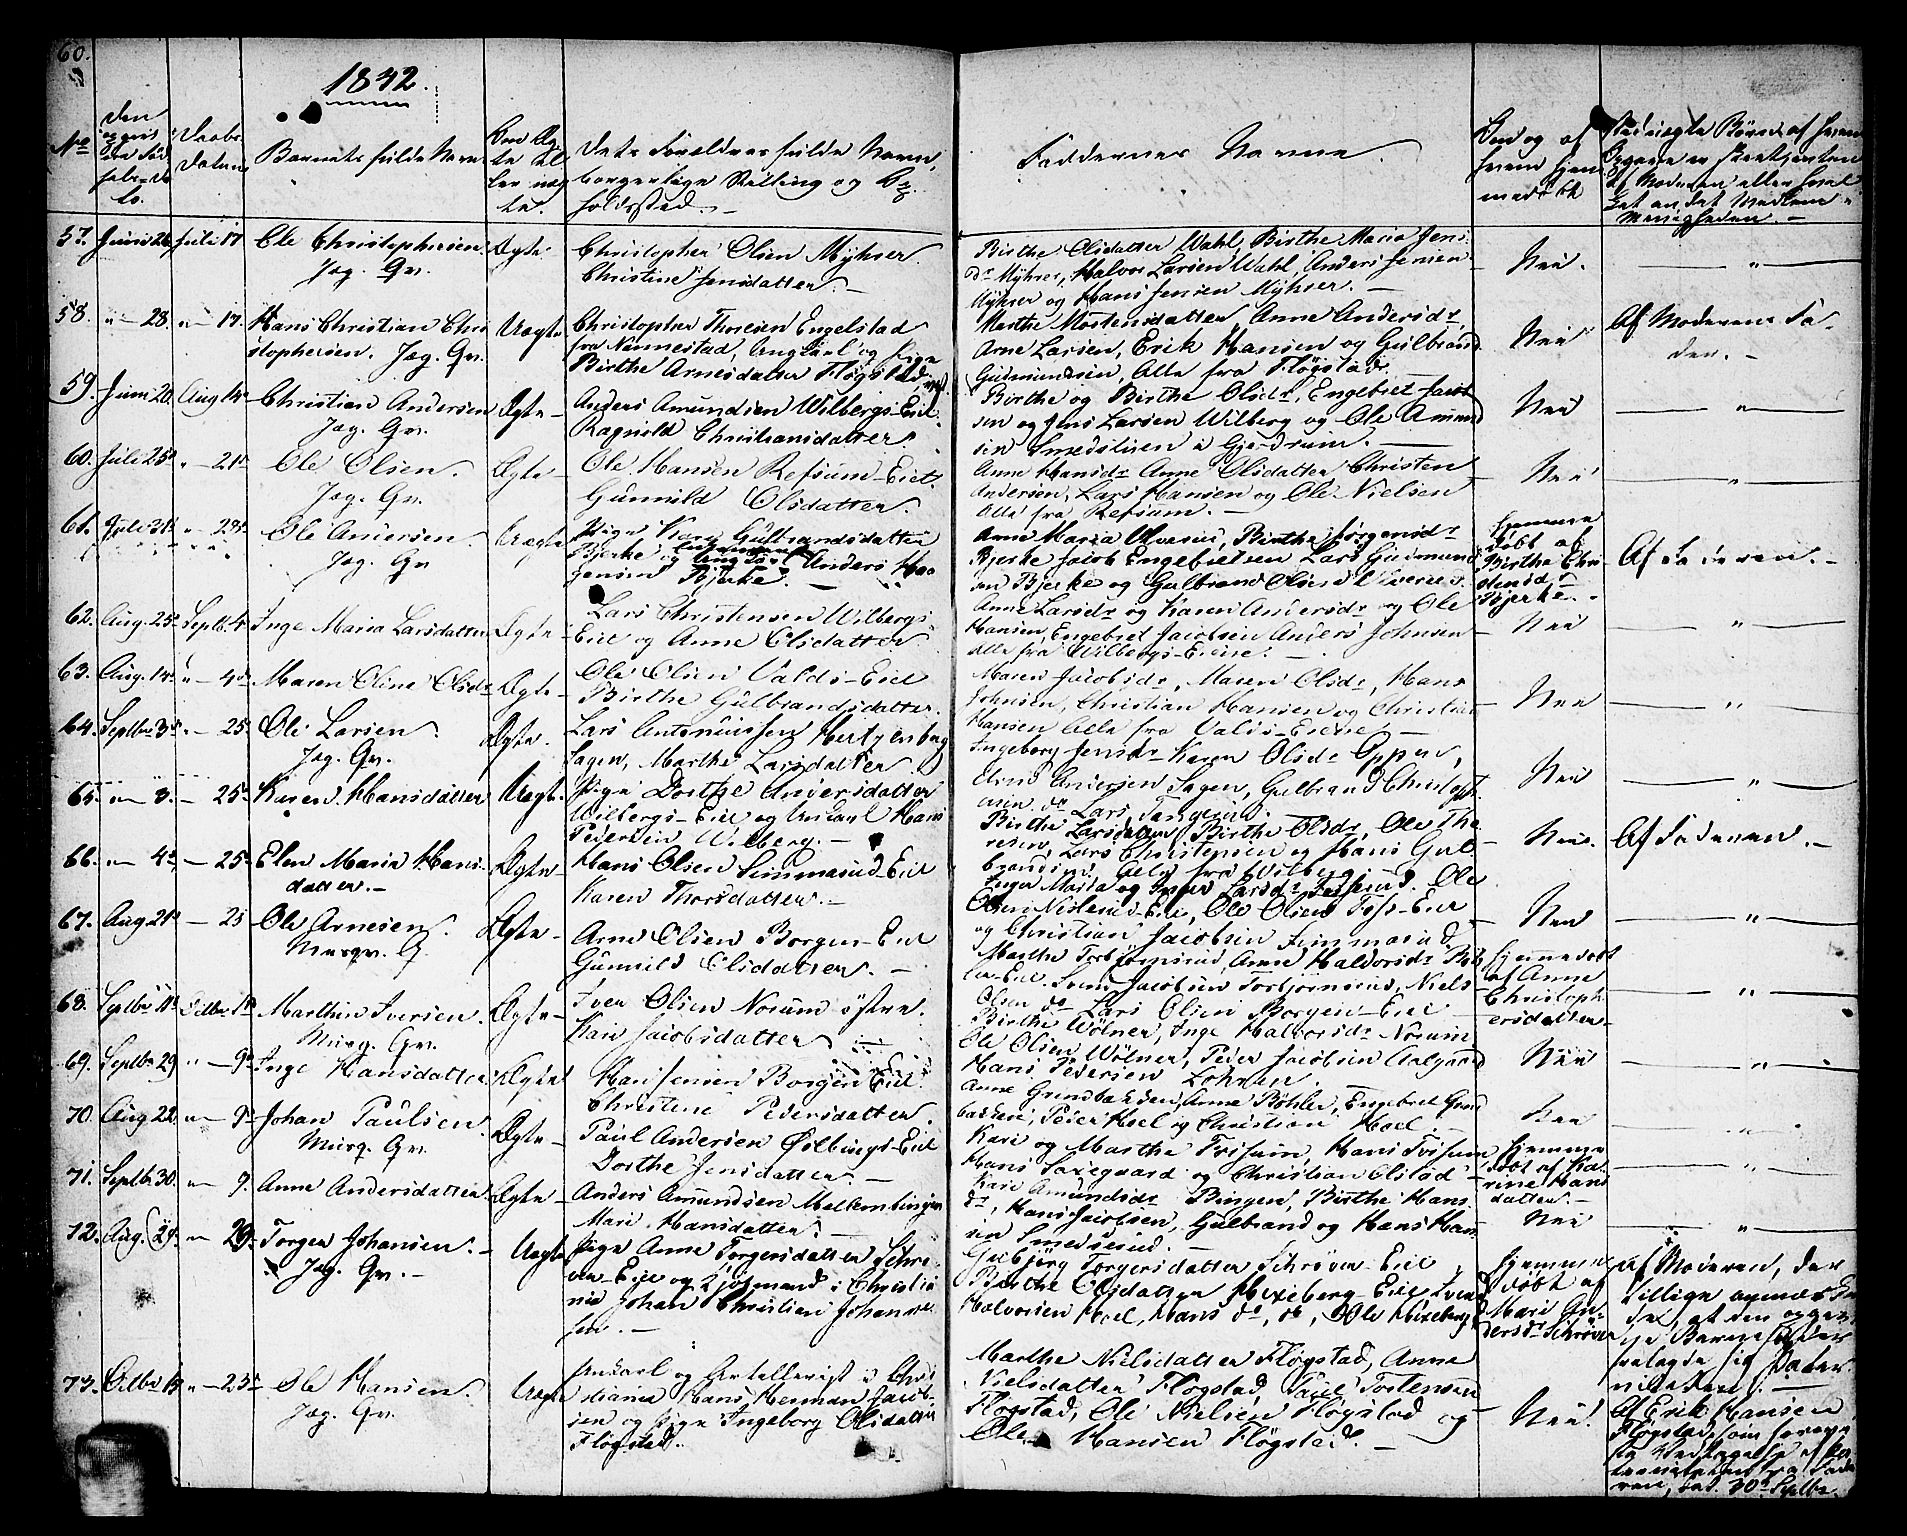 60.
1842.
No
Den
opgivne
Daabs-
Datum
Barnets fulde Navn
Om Æg-
te el-
ler uæg-
te.
Dets Forældres fulde Navn,
borgerlige Stilling og Op-
holdssted. -
Faddernes Navne.
Om og af
hvem hjem-
medøbt
57. Juni 26 Juli 17 Ole Christophersen.
Jag. Gr.
Ægte
Christopher Olsen Myhrer
Christine Jensdatter. -
Birthe Olsdatter Wahl, Birthe Maria Jens-
dr Myhrer, Halvor Larsen Wahl, Anders Jensen
Myhrer og Hans Jensen Myhrer. -
Nei.
58. " - 28. " - 17. Hans Christian Chri-
stophersen. Jag. Gr.
Uægte
Christopher Thoresen Engelstad
fra Nannestad, Ungkarl og Pige
Birthe Arnesdatter Fløgstad
Marthe Mortensdatter, Anne Andersdr,
Arne Larsen, Erik Hansen og Gulbrand
Gudmundsen, Alle fra Fløgstad.
Nei
Af Moderens Fa-
der. -
59. Juni 20. Aug 14 Christian Andersen
Jag. Gr.
Ægte
Anders Amundsen Wilbergs-Eie.
Ragnild Christiansdatter.
Birthe og Birthe Olsdr, Engebret Jacob
sen og Jens Larsen Wilberg og Ole Amund
sen Smedstuen i Gjerdrum. -
Nei
60. Juli 25 " - 21 Ole Olsen.
Jag. Gr.
Ægte -
Ole Hansen Refsum-Eiet.
Gunnild Olsdatter.
Anne Hansdr Anne Olsdatter Christen
Andersen, Lars Hansen og Ole Nielsen
Alle fra Refsum. -
Nei
61. Juli 31 " - 28 Ole Andersen.
Jag. Gr.
Uægte
Pige Kari Gulbrandsdatter
Bjerke og Ungkarl Anders Haa-
gensen Bjerke. -
Anne Maria Birthe Jørgensdr
Bjerke Jacob Engebretsen Lars Gudmund
sen Bjerke og Gulbrand Olsen
Hjemme
døbt af
Birthe Chri
stensdr
Bjerke.
Af Faderen. -
62. Aug. 25 Septb. 4 Inge Maria Larsdatter
Ægte -
Lars Christensen Wilbergs-
Eie og Anne Olsdatter
Anne Larsdr og Karen Andersdr og Ole
Hansen, Engebret Jacobsen Anders Johnsen
alle fra Wilbergs-Eiene. -
Nei
63. Aug. 14 " - 4 Maren Oline Olsdr
Ægte -
Ole Olsen Valds-Eiet
Birthe Gulbrandsdatter.
Maren Jacobsdr, Maren Olsdr, Hans
Johnsen, Christian Hansen og Christian
Hansen Alle fra Valds-Eiene -
Nei
64. Septbr 3 " - 25 Ole Larsen.
Jag. Gr.
Ægte.
Lars Antonissen Hertzenberg
Sagen, Marthe Larsdatter.
Ingeborg Jensdr Karen Olsdr Oppen,
Arne Andersen Sagen, Gulbrand Christoph
ersen dr Lars Tangerud.
Nei
65. " 3. - 25 Karen Hansdatter
Uægte.
Pige Dorthe Andersdatter
Wilbergs-Eie og Ungkarl Hans
Pedersen Wilberg. -
Birthe Larsdatter, Birthe Olsdr, Ole Tho
resen, Lars Christensen og Hans Gul-
brandsen. Alle fra Wilberg.
Nei.
Af Faderen. -
66. " 4 - 25 Elen Maria Hans-
datter. -
Ægte -
Hans Olsen Simmarud-Eie
Karen Thorsdatter. -
Inger Maria og Inger Larsdr Ole
Olsen Nisterud-Eie, Ole Olsen Foss-Eie
og Christian Jacobsen
Nei
67. Aug 21 - 25 Ole Arnesen.
Murqv. G.
Ægte -
Arne Olsen Borgen-Eie
Gunnild Olsdatter. -
Marthe Torbjørnsrud, Anne Halvorsdr
Eie. Svend Jacobsen Torbjørnsrud, Niels
Olsen dr Lars Olsen Borgen-Eie
Hjemmedøbt
af Anne
Christoph-
ersdatter
68. Septbr 11 Octbr 1 Marthin Iversen.
Murq. Gr.
Ægte -
Iver Olsen Norum østre.
Kari Jacobsdatter
Birthe Wølner, Inge Halvorsdr Norum
Ole Olsen Wølner, Peder Jacobsen Aalgaard
Hans Pedersen Lohren.
Nei
69. Septbr 29 " - 9 Inge Hansdatter
Ægte
Hans Jensen Borgen Eie.
Christine Pedersdatter.
Anne Grundbakken, Anne Bøhler, Engebret Grund
bakken, Peder Hoel og Christian Hoel. -
Nei
70. Aug 22 " - 9 Johan Paulsen.
Murq. Gr.
Ægte -
Paul Andersen Ølbyings-Eie
Dorthe Jensdatter. -
Kari og Marthe Frisum, Hans Frisum
Hans Saxegaard og Christian Olstad
Hjemme
døbt af Ka-
rine Hans
datter. -
71. Septbr 30. " - 9. Anne Andersdatter.
Ægte -
Anders Amundsen Melkembingen
Mari Hansdatter. -
Kari Amundsdr Bingen, Birthe Hans
dr, Hans Jacobsen, Gulbrand og Hans Han-
sen Smedserud. -
Nei
72. Aug. 29. " - 29. Torger Johansen. -
Jag. Gr. -
Uægte
Pige Anne Torgersdatter Schrø-
ver-Eie og Sjømand i Christia-
nia Johan Christian Johanne-
sen. -
Gubjørg Torgersdatter Schrøver-Eie
Birthe Olsdatter Hexeberg-Eie Svend
Halvorsen Hoel, Hans dr, dr, Ole Hexeberg
Hjemme
døbt af
Mari An-
dersdr Schrøver
Af Moderen, der
tillige
de, at den opgiv-
ne Barnefader
frelagde sig Pater
niteten. -
73. Octbr 13 " - 23 Ole Hansen.
Jag. Gr.
Uægte
Ungkarl og Artellerist i Chri-
stiania Hans Herman Jacob-
sen og Pige Ingeborg Olsdatter
Fløgstad.
Marthe Nielsdatter Fløgstad, Anne
Nielsdatter Fløgstad, Paul Tostensen
Fløgstad, Ole Nielsen Fløgstad og
Ole Hansen Fløgstad. -
Nei.
Af Erik Hansen
Fløgstad, som
af Fa-
deren, dat. 30 Septbr.